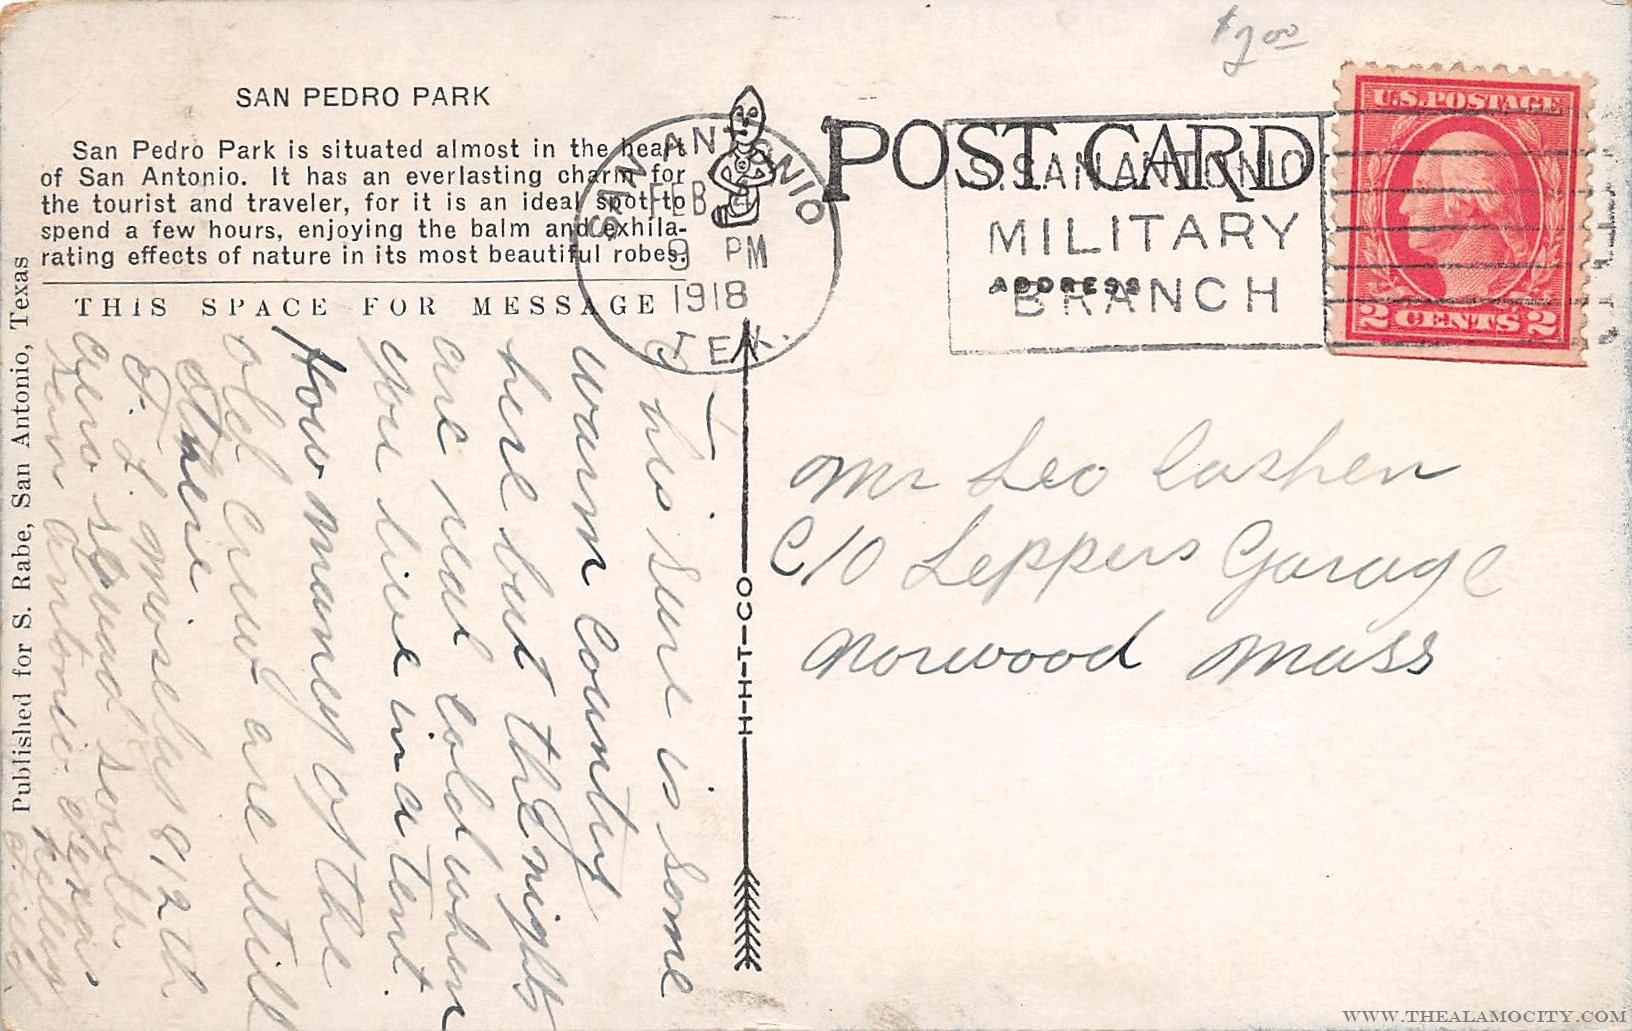 $2.00
SAN PEDRO PARK
San Pedro Park is situated almost in the heart
of San Antonio. It has an everlasting charm for
the tourist and traveler, for it is an ideal spot to
spend a few hours, enjoying the balm and exhila-
rating effects of nature in its most beautiful robes.
THIS SPACE FOR MESSAGE
POST CARD
ADDRESS
SAN ANTONIO
FEB 4
9 PM
1918
TEX.
S. SAN ANTONIO
MILITARY
BRANCH
U.S. POSTAGE
2 CENTS 2
This sure is some
warm country
here but the nights
are real cold when
you live in a tent.
How many of the
old crew are still
there
812th
aero squad south
San Antonio Texas
Kelly
Field
Mr Leo Cashen
C/O Leppers Garage
Norwood Mass
H-H-T-CO
Published for S. Rabe, San Antonio, Texas
WWW.THEALAMOCITY.COM